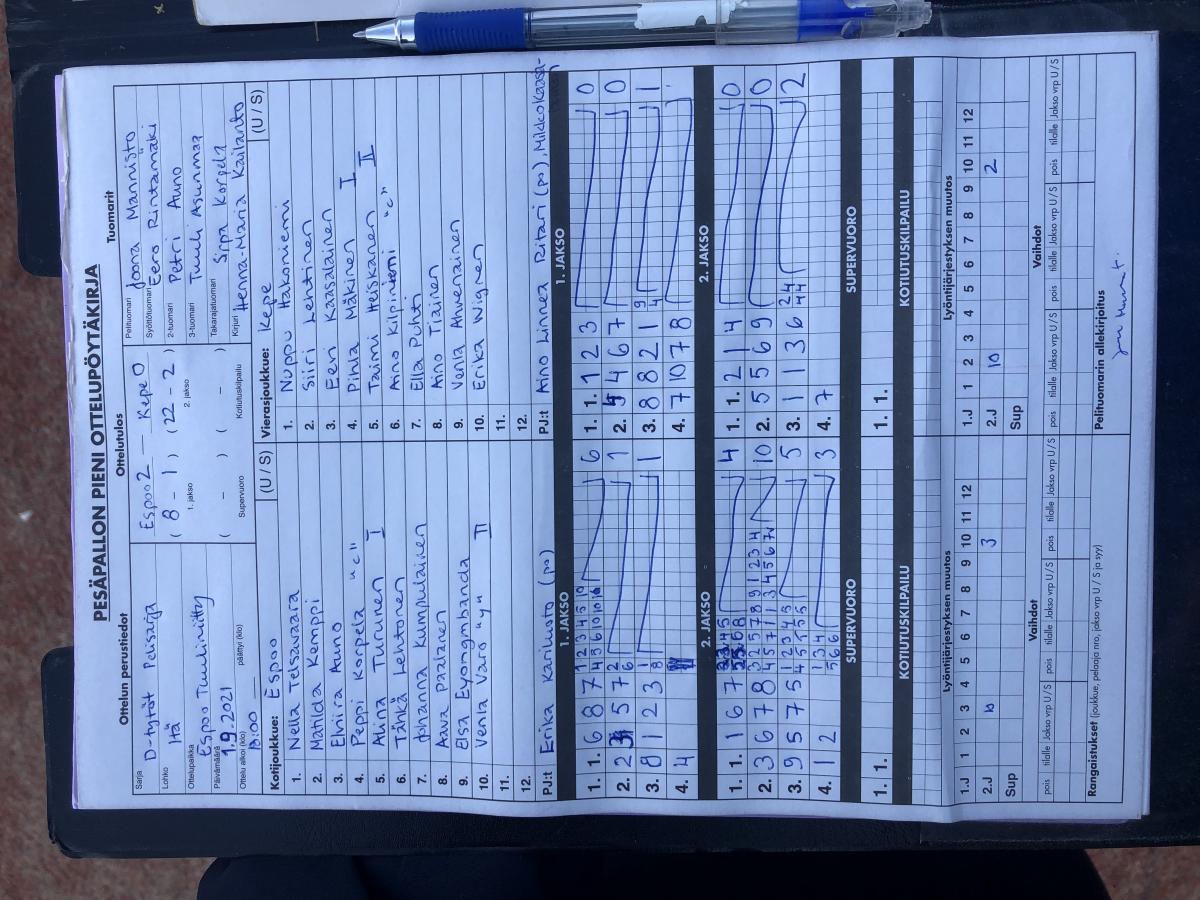 PESÄPALLON PIENI OTTELUPÖYTÄKIRJA
Ottelun perustiedot
Sarja D-tytöt Pelisarja
Lohko Itä
Ottelupaikka Espoo Tuuliniitty
Päivämäärä 1.9.2021
Ottelu alkoi (klo) 18:00 päättyi (klo)
Ottelutulos
Espoo 2 — Kepe 0
( 8 - 1 ) ( 22 - 2 )
1. jakso 2. jakso
( - ) ( - )
Supervuoro Kotiutuskilpailu
Tuomarit
Pelituomari Joona Mannisto
Syöttötuomari Eero Rintamäki
2-tuomari Petri Auno
3-tuomari Tuuli Asunmaa
Takarajatuomari Sipa Korpela
Kirjuri Henna-Maria Kailanto
Kotijoukkue: Espoo (U / S)
1. Nella Telsavaara
2. Matilda Kemppi
3. Elviira Auno
4. Peppi Korpela "c"
5. Aina Turunen I
6. Tähkä Lehtonen
7. Johanna Kumpulainen
8. Aava Palanen
9. Elsa Eyongmbanda
10. Venla Varo "y" II
11.
12.
PJ:t Erika Kariluoto (po)
Vierasjoukkue: Kepe (U / S)
1. Nuppu Hakoniemi
2. Siiri Lehtinen
3. Eevi Kaasalainen
4. Pihla Mäkinen I
5. Taimi Heiskanen II
6. Aino Kilpiniemi "c"
7. Ella Puhti
8. Aino Tiainen
9. Venla Ahvenainen
10. Erika Wigren
11.
12.
PJ:t Aino Linnea Ritari (po), Mikko Kaasa-
1. JAKSO
1. 1. 6 8 7 6
2. 5 7 1
3. 8 1 2 3 1
4. 4
2. JAKSO
1. 1. 1 6 7 4
2. 3 6 7 8 10
3. 9 5 7 5 5
4. 1 2 3
SUPERVUORO
1. 1.
KOTIUTUSKILPAILU
1. JAKSO
1. 1. 1 2 3 0
2. 4 6 7 0
3. 8 8 2 1 1
4. 7 10 7 8
2. JAKSO
1. 1. 2 1 4 0
2. 5 5 6 9 0
3. 1 1 3 6 2
4. 7
SUPERVUORO
1. 1.
KOTIUTUSKILPAILU
Lyöntijärjestyksen muutos
1 2 3 4 5 6 7 8 9 10 11 12
1.J
2.J 10 3
Sup
Vaihdot
pois tilalle Jakso vrp U/S pois tilalle Jakso vrp U/S pois tilalle Jakso vrp U/S
Lyöntijärjestyksen muutos
1 2 3 4 5 6 7 8 9 10 11 12
1.J
2.J 10 2
Sup
Vaihdot
pois tilalle Jakso vrp U/S pois tilalle Jakso vrp U/S pois tilalle Jakso vrp U/S
Rangaistukset (joukkue, pelaaja nro, jakso vrp U / S ja syy)
Pelituomarin allekirjoitus